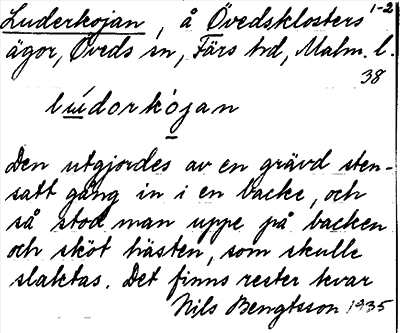 Luderkojan, å Övedsklosters 1-2
ägor, Öveds sn, Färs hd, Malm. l.
38
lúdorkójan
Den utgjordes av en grävd sten-
satt gång in i en backe, och
så stod man uppe på backen
och sköt hästen, som skulle
slaktas. Det finns rester kvar
Nils Bengtsson 1935